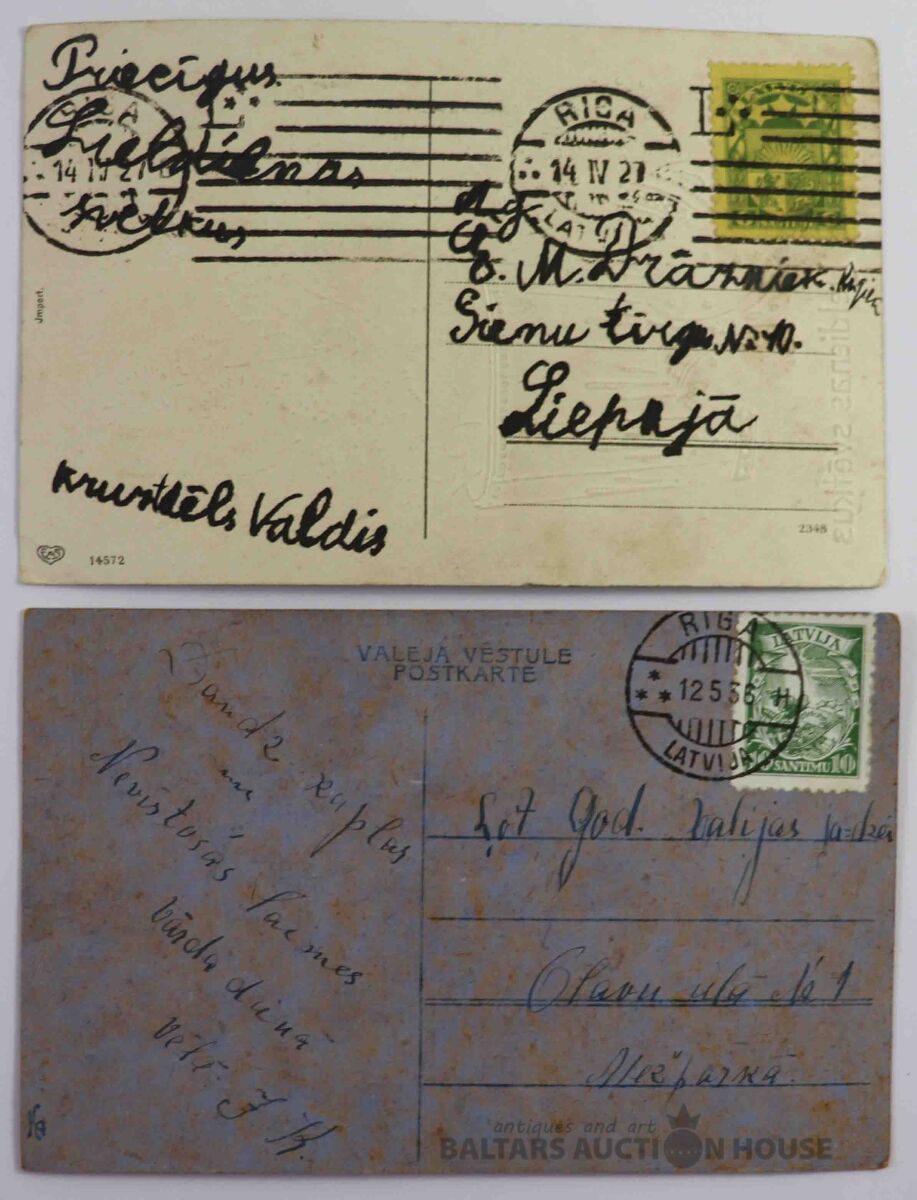 Priecīgus
Lieldienas
svētkus
RIGA
14 IV 27
RIGA
14 IV 27
LATVIJA
A. g.
M. Drāzniek.
Sienu tirgu No 10.
Liepajā
Krustdēls Valdis
Jmport.
EAS
14572
2348
Lieldienas svētkus
VALEJA VĒSTULE
POSTKARTE
RIGA
12 5 36 H
LATVIJA
LATVIJA
10 SANTIMU 10
Daudz kaplus
un
Nevīstošas laimes
vārda dienā
vēlē
J K.
Ļot God. Kalijas
Olavu ielā № 1
Mežparkā.
antiques and art
BALTARS AUCTION HOUSE